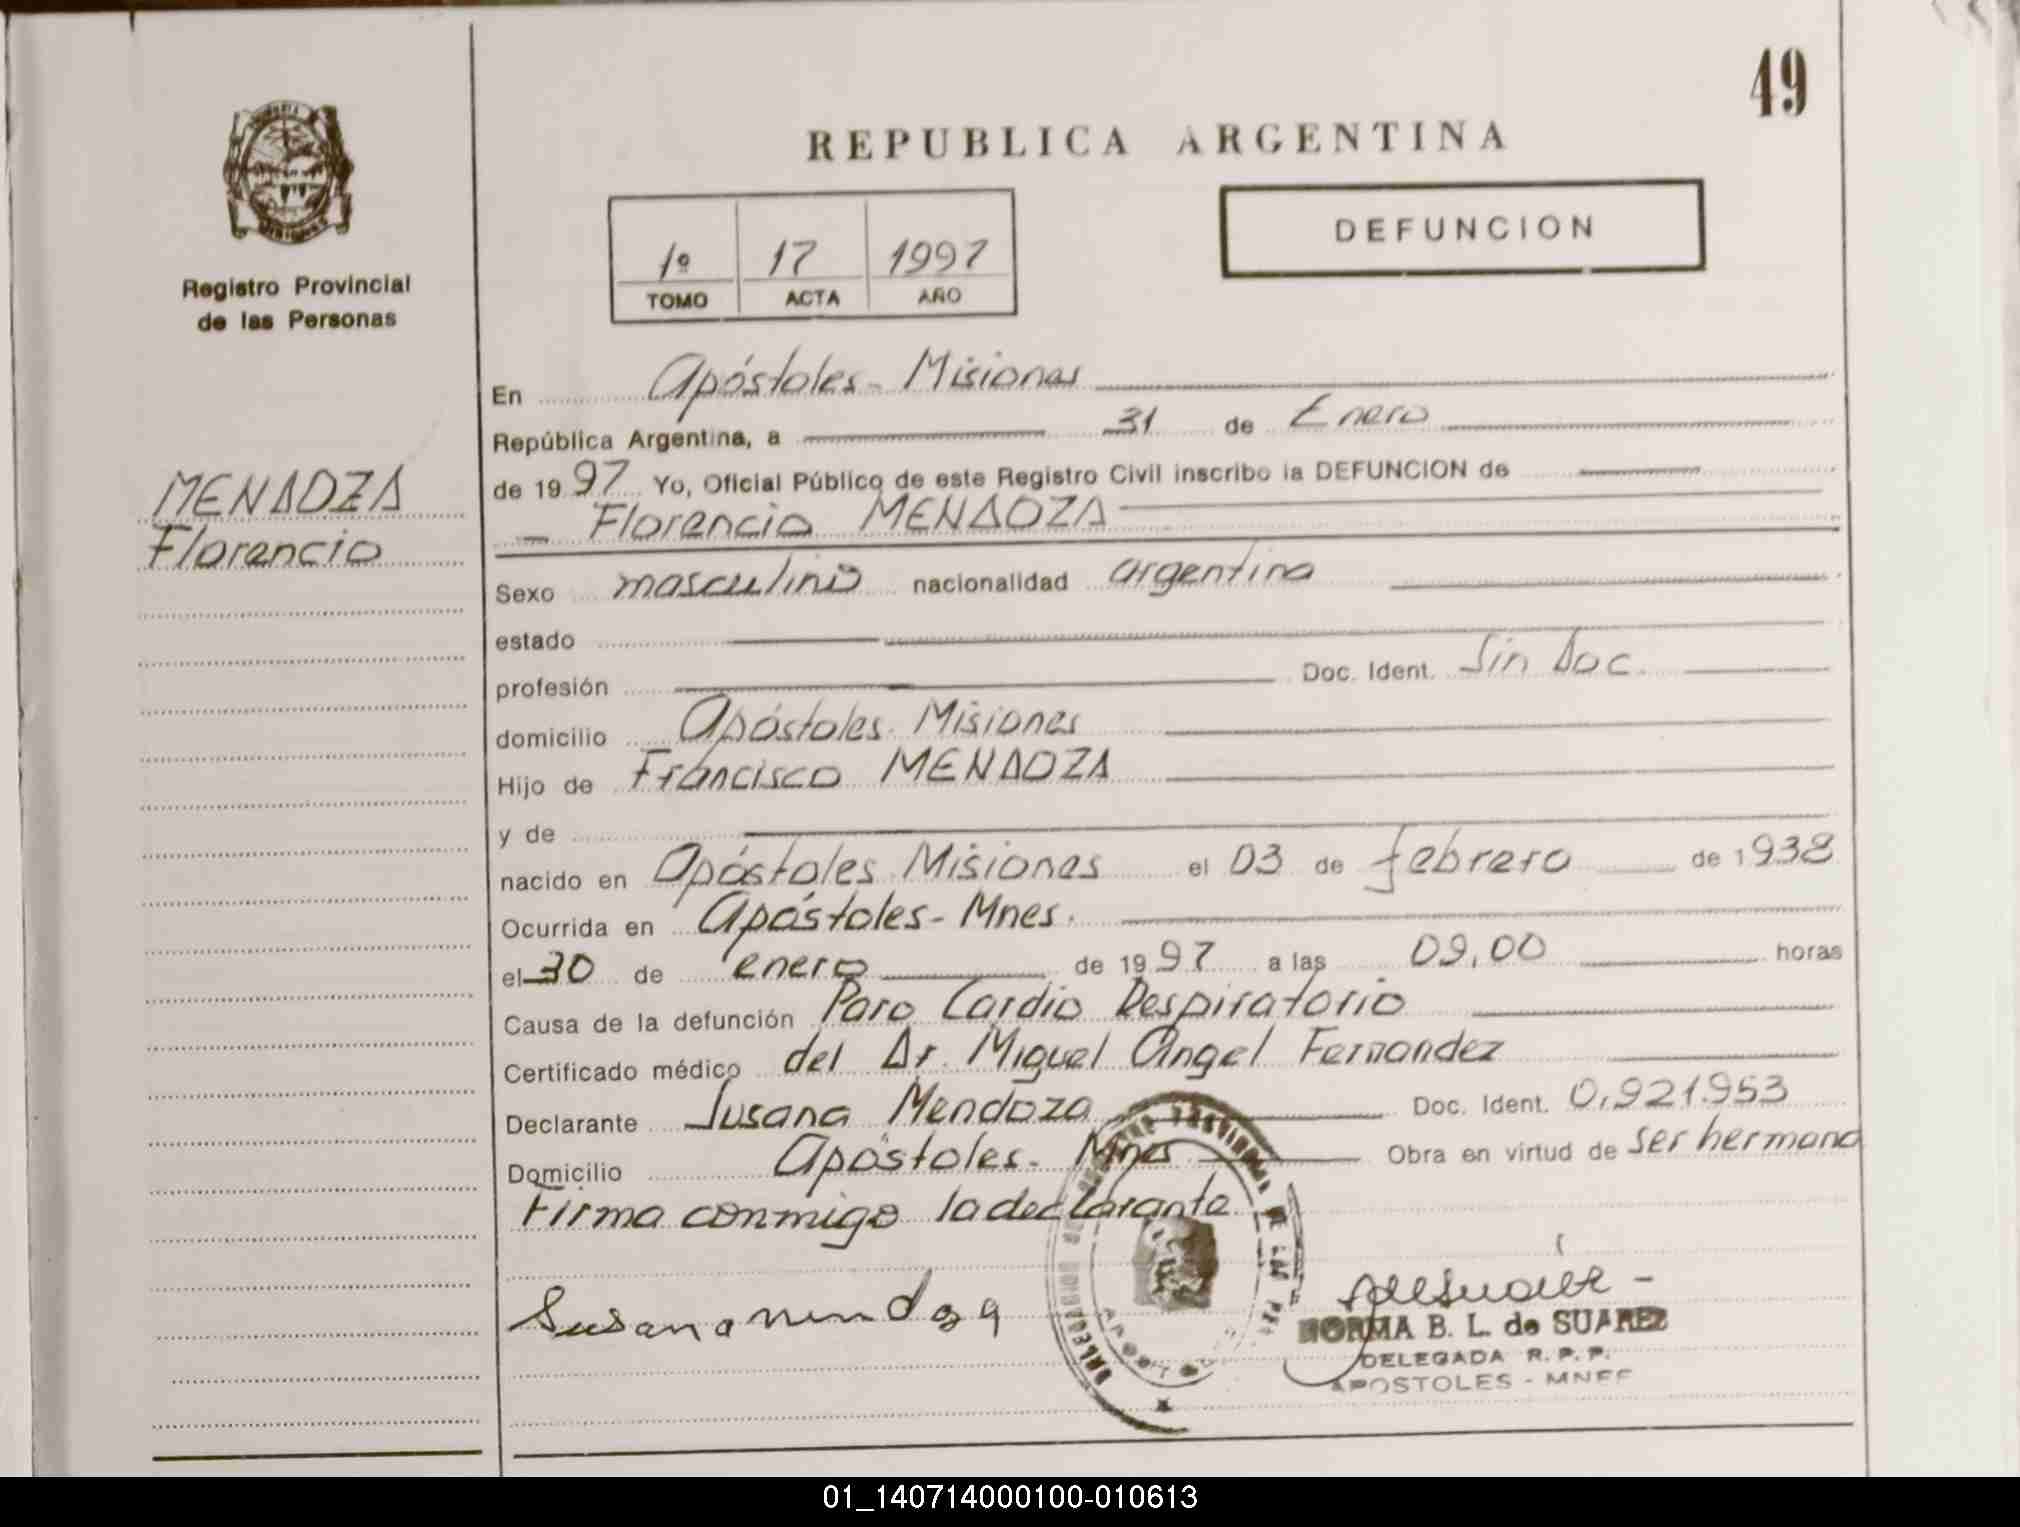 49
REPUBLICA ARGENTINA
1º 17 1997
TOMO ACTA AÑO
DEFUNCION
Registro Provincial
de las Personas
MENDOZA
Florencio
En Apóstoles - Misiones
República Argentina, a 31 de Enero
de 1997 Yo, Oficial Público de este Registro Civil inscribo la DEFUNCION de
Florencio MENDOZA
Sexo masculino nacionalidad argentina
estado
profesión Doc. Ident. Sin Doc.
domicilio Apóstoles. Misiones
Hijo de Francisco MENDOZA
y de
nacido en Apóstoles. Misiones el 03 de febrero de 1938
Ocurrida en Apóstoles - Mnes.
el 30 de enero de 1997 a las 09,00 horas
Causa de la defunción Paro Cardio Respiratorio
Certificado médico del Dr. Miguel Angel Fernandez
Declarante Susana Mendoza Doc. Ident. 0,921.953
Domicilio Apóstoles - Mnes Obra en virtud de ser hermana
Firma conmigo la declarante
Susana mendoza
NORMA B. L. de SUAREZ
DELEGADA R. P. P.
APOSTOLES - MNES
01_140714000100-010613